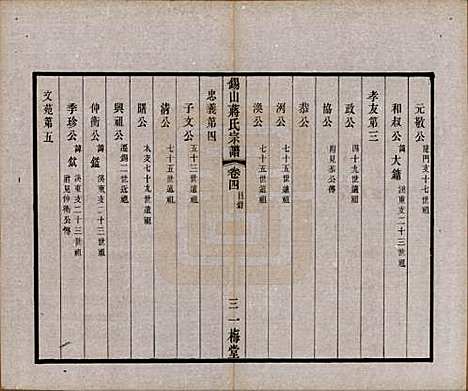 元敏公 建門支十七世祖
和叔公 諱大鏞 洪東支二十三世祖
孝友第三
政公 四十九世遠祖
協公 附見恭公傳
恭公
洌公 七十五世遠祖
渙公 七十五世遠祖
錫山蔣氏宗譜 卷四 目錄 三 一梅堂
忠義第四
子文公 五十三世遠祖
清公 七十五世遠祖
曙公 太支七十九世遠祖
興祖公 遷錫二世近祖
仲衡公 諱鎰 洪東支二十三世祖
季珍公 諱欽 洪東支二十三世祖 附見仲衡公傳
文苑第五